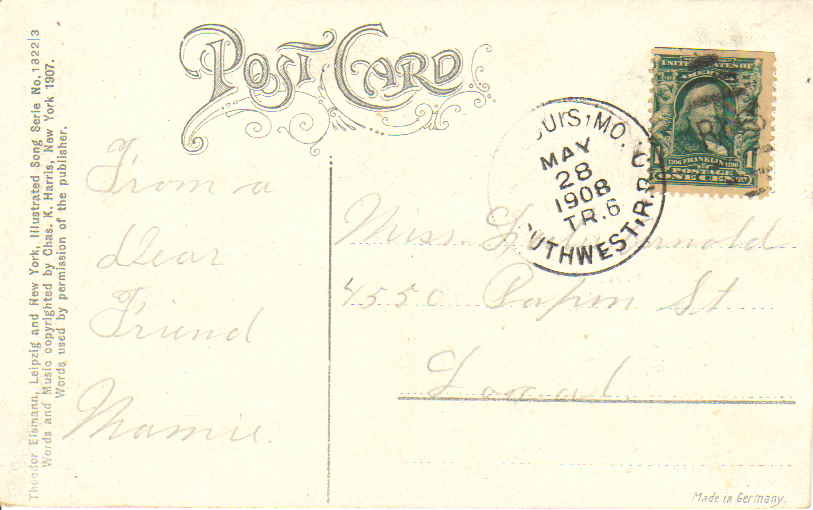 POST CARD
Theodor Eismann, Leipzig and New York, Illustrated Song Serie No. 1822|3
Words and Music copyrighted by Chas. K. Harris, New York 1907.
Words used by permission of the publisher.
UNITED STATES OF
AMERICA
1706 FRANKLIN 1790
POSTAGE
1 ONE CENT 1
OUIS, MO.
MAY
28
1908
TR. 6
UTHWEST, R.R.
From a
Dear
Friend
Mamie.
Miss Arnold
4550 Papin St
Local
Made in Germany.